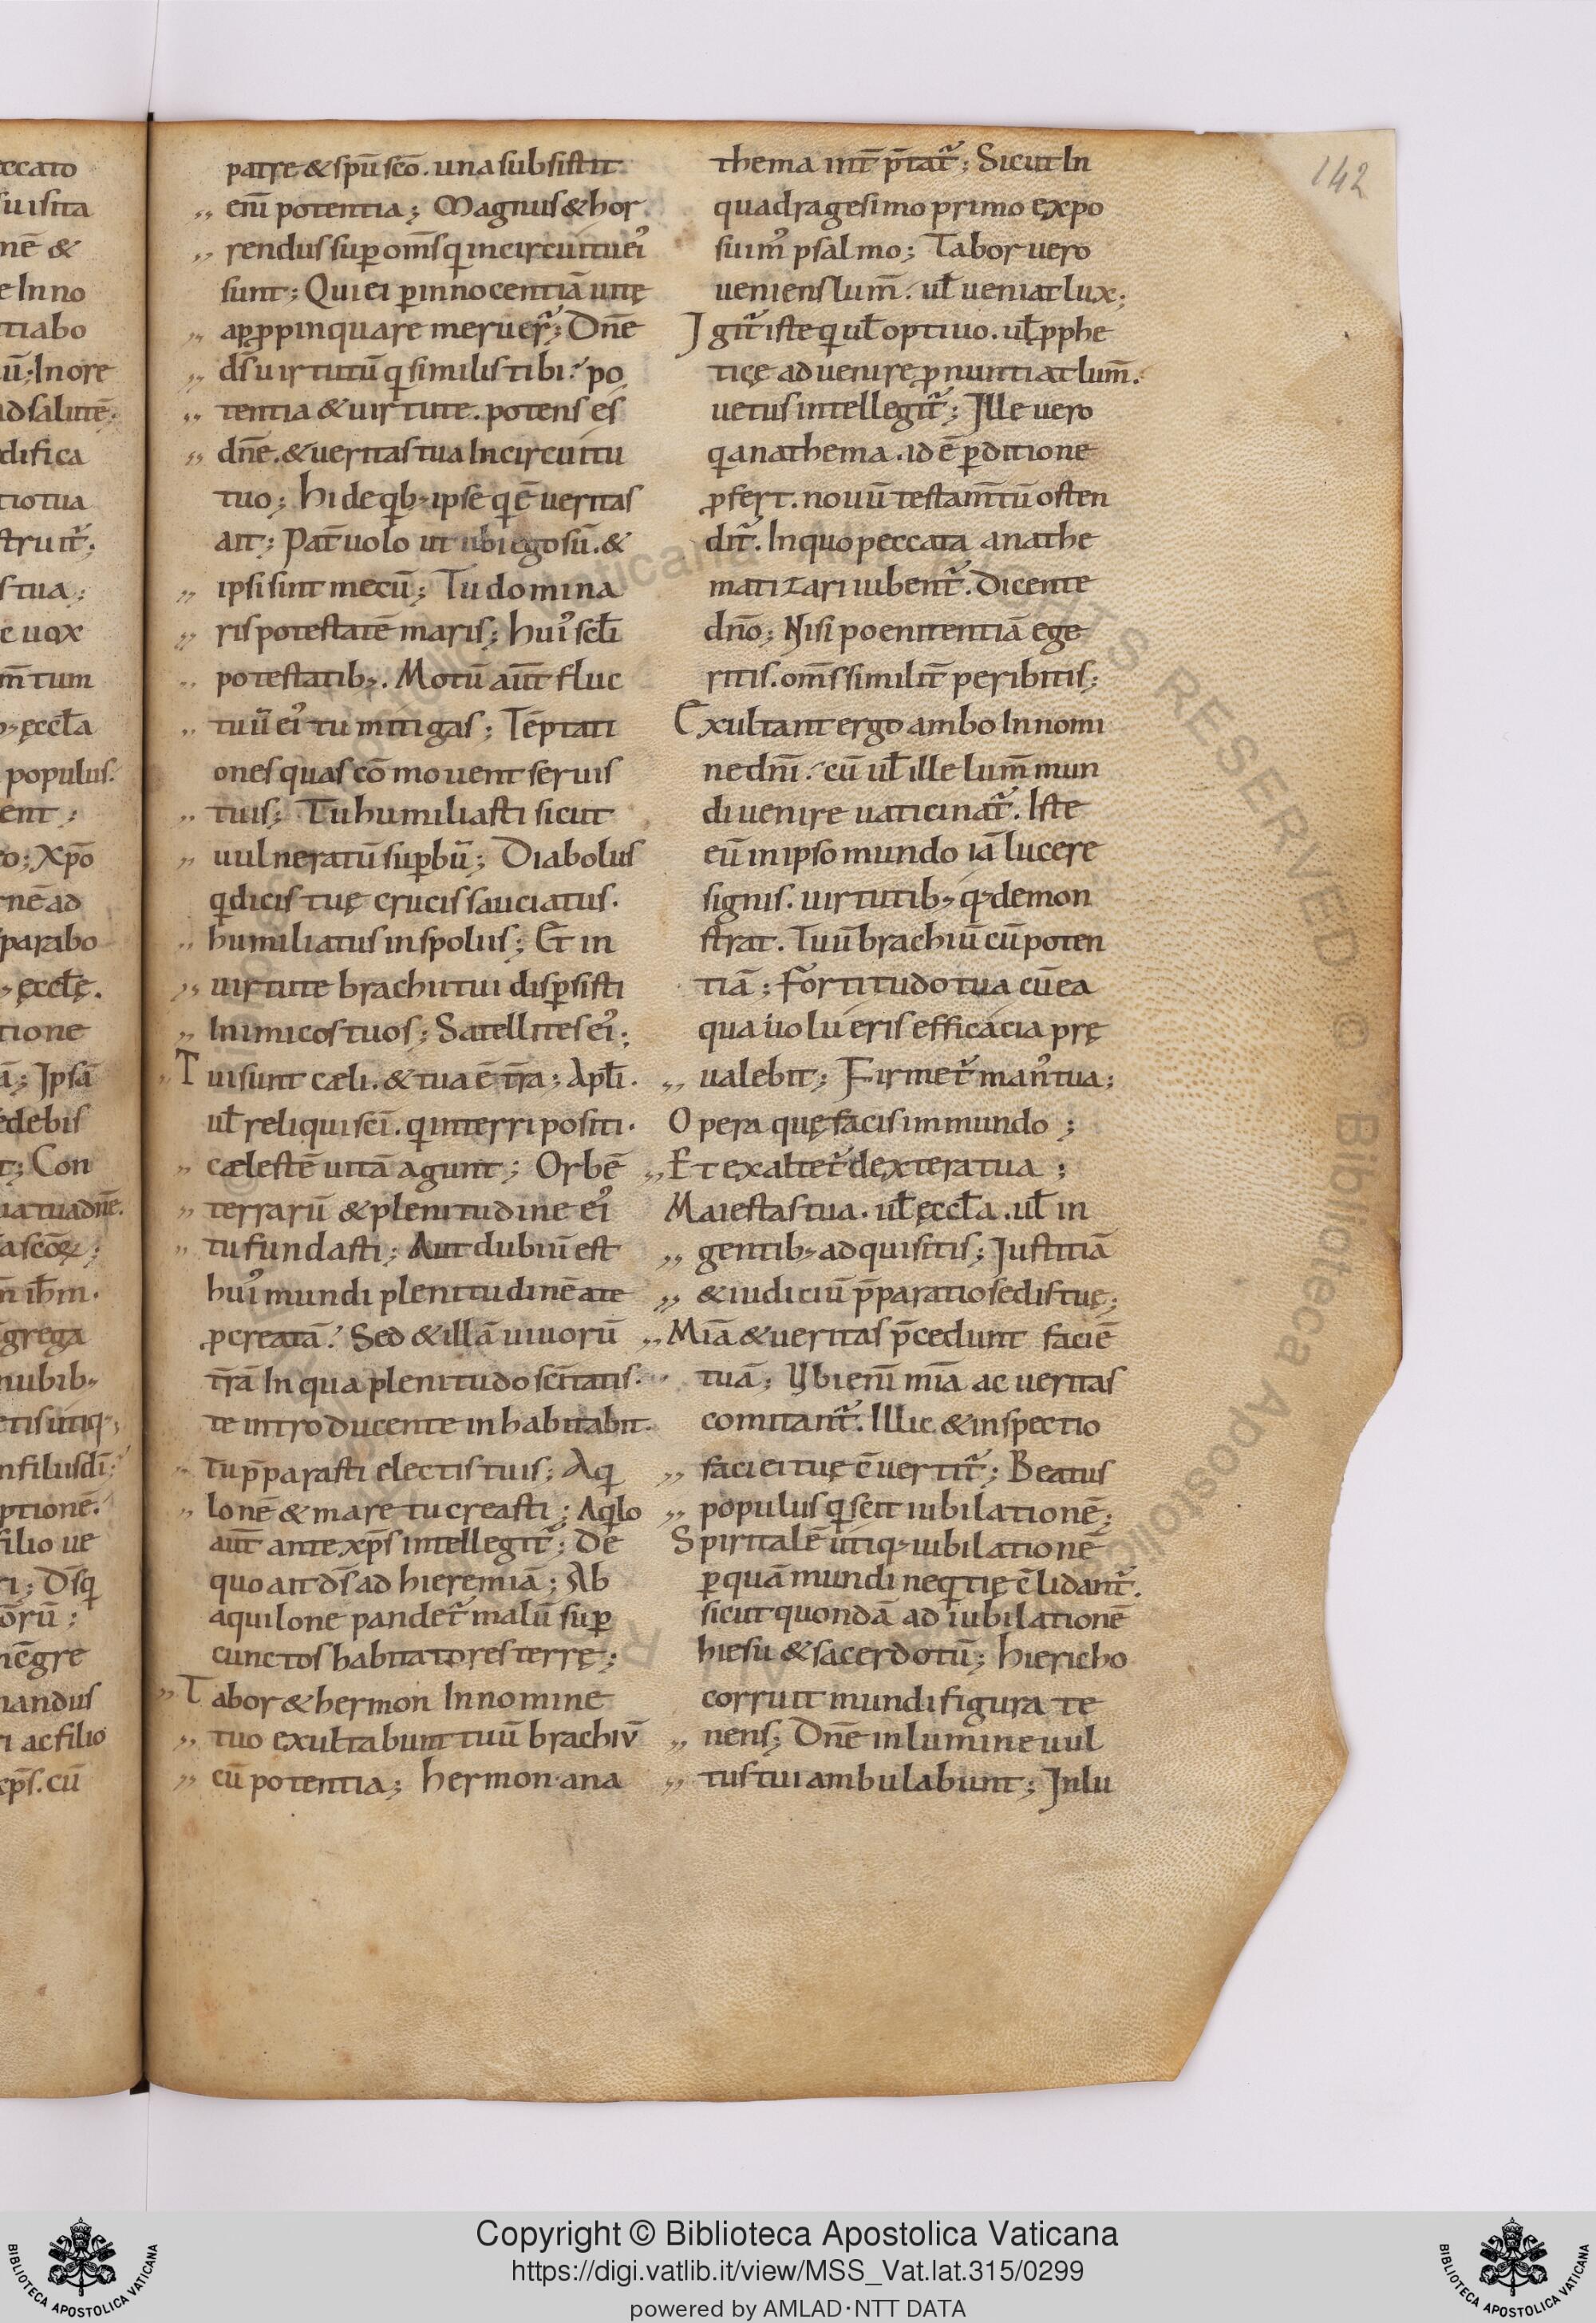 142
patre & spū scō. una subsistit
enī potentia; Magnus & hor
rendus sup om̄s q incircuitu ei᾿
sunt; Qui ei p innocentiā uitę
apppinquare meruer̄; Dn̄e
ds̄ uirtutū q similis tibi? po
tentia & uirtute. potens es
dn̄e. & ueritas tua In circuitu
tuo; hi de qb; ipse q ē ueritas
ait; Pat̄ uolo ut ubi ego sū. &
ipsi sint mecū; Tu domina
ris potestatē maris; hui᾿ scłi
potestatib;. Motū aūt fluc
tuū ei᾿ tu mitigas; Tēptati
ones quas cōmouent seruis
tuis; Tu humiliasti sicut
uulneratū supbū; Diabolus
q dicis tuę crucis sauciatus.
humiliatus in spoliis; Et in
uirtute brachii tui dispsisti
Inimicos tuos; Satellites ei᾿;
Tui sunt cæli. & tua ē tr̄a; Apłi.
uł reliqui sc̄i. q in terri positi.
cælestē uitā agunt; Orbē
terrarū & plenitudinē ei᾿
tu fundasti; Aut dubiū est
hui᾿ mundi plenitudinē a te
pcreatā? Sed & illā uiuorū
tr̄ā In qua plenitudo sc̄itatis.
te introducente inhabitabit.
Tu p̄parasti electis tuis; Aq
lonē & mare tu creasti; Aqlo
aūt antexp̄s intellegit᾿; De
quo ait ds̄ ad hieremiā; Ab
aquilone pandet᾿ malū sup
cunctos habitatores terrę;
Tabor & hermon In nomine
tuo exultabunt tuū brachiū
cū potentia; hermon ana
thema int̄p̄tat᾿; Sicut In
quadragesimo primo expo
suim᾿ psalmo; Tabor uero
ueniens lum̄. uł ueniat lux;
Igit᾿ iste q uł optiuo. uł pphe
ticę aduenire pnuntiat lum̄.
uetus intellegit᾿; Ille uero
q anathema. id ē pditione
pfert. nouū testam̄tū osten
dit᾿. In quo peccata anathe
matizari iubent᾿. Dicente
dn̄o; Nisi poenitentiā ege
ritis. om̄s similit̄ peribitis;
Exultant ergo ambo In nomi
ne dn̄i. cū uł ille lum̄ mun
di uenire uaticinat᾿. Iste
eū in ipso mundo iā lucere
signis. uirtutib; q; demon
strat. Tuū brachiū cū poten
tiā; fortitudo tua cū ea
qua uolueris efficacia prę
ualebit; Firmet᾿ man᾿ tua;
Opera quę facis im mundo;
Et exaltet᾿ dextera tua;
Maiestas tua. uł ęccła. uł in
gentib; adquisitis; Iustitiā
& iudiciū p̄paratio sedis tuę;
Mīa & ueritas p̄cedunt faciē
tuā; Ybi enī mīa ac ueritas
comitant᾿. Illic & inspectio
faciei tuę c̄uertit᾿; Beatus
populus q scit iubilationē;
Spiritalē utiq; iubilationē
p quā mundi neqtię c̄lidant᾿.
sicut quondā ad iubilationē
hiesu & sacerdotū; hiericho
corruit mundi figura te
nens; Dn̄e in lumine uul
tus tui ambulabunt; In lu
Copyright © Biblioteca Apostolica Vaticana
https://digi.vatlib.it/view/MSS_Vat.lat.315/0299
powered by AMLAD·NTT DATA
BIBLIOTECA APOSTOLICA VATICANA
BIBLIOTECA APOSTOLICA VATICANA